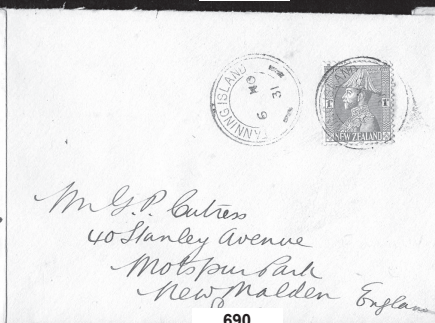 FANNING ISLAND
31
9
NEW ZEALAND
Mr G. P. Cutress
40 Stanley Avenue
Motspur Park
New Malden England
690